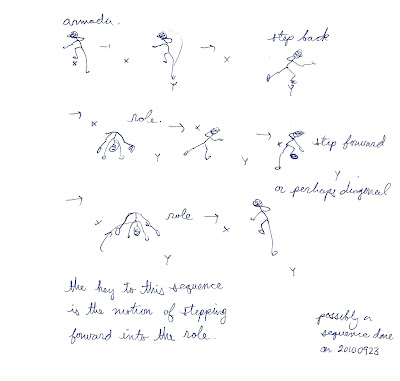 armada.
x x y x
step back
y
x role. x x step forward
y y y
or perhaps diagonal
x role x
y y
the key to this sequence
is the motion of stepping
forward into the role.
possibly a
sequence done
on 20100923